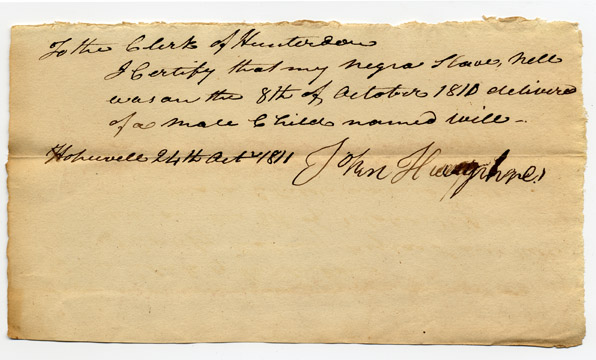 To the Clerk of Hunterdon
I Certify that my negra Slave, Nell
was on the 8th of October 1810 delivered
of a male Child named Will -
Hopewell 24th Oct 1811 John